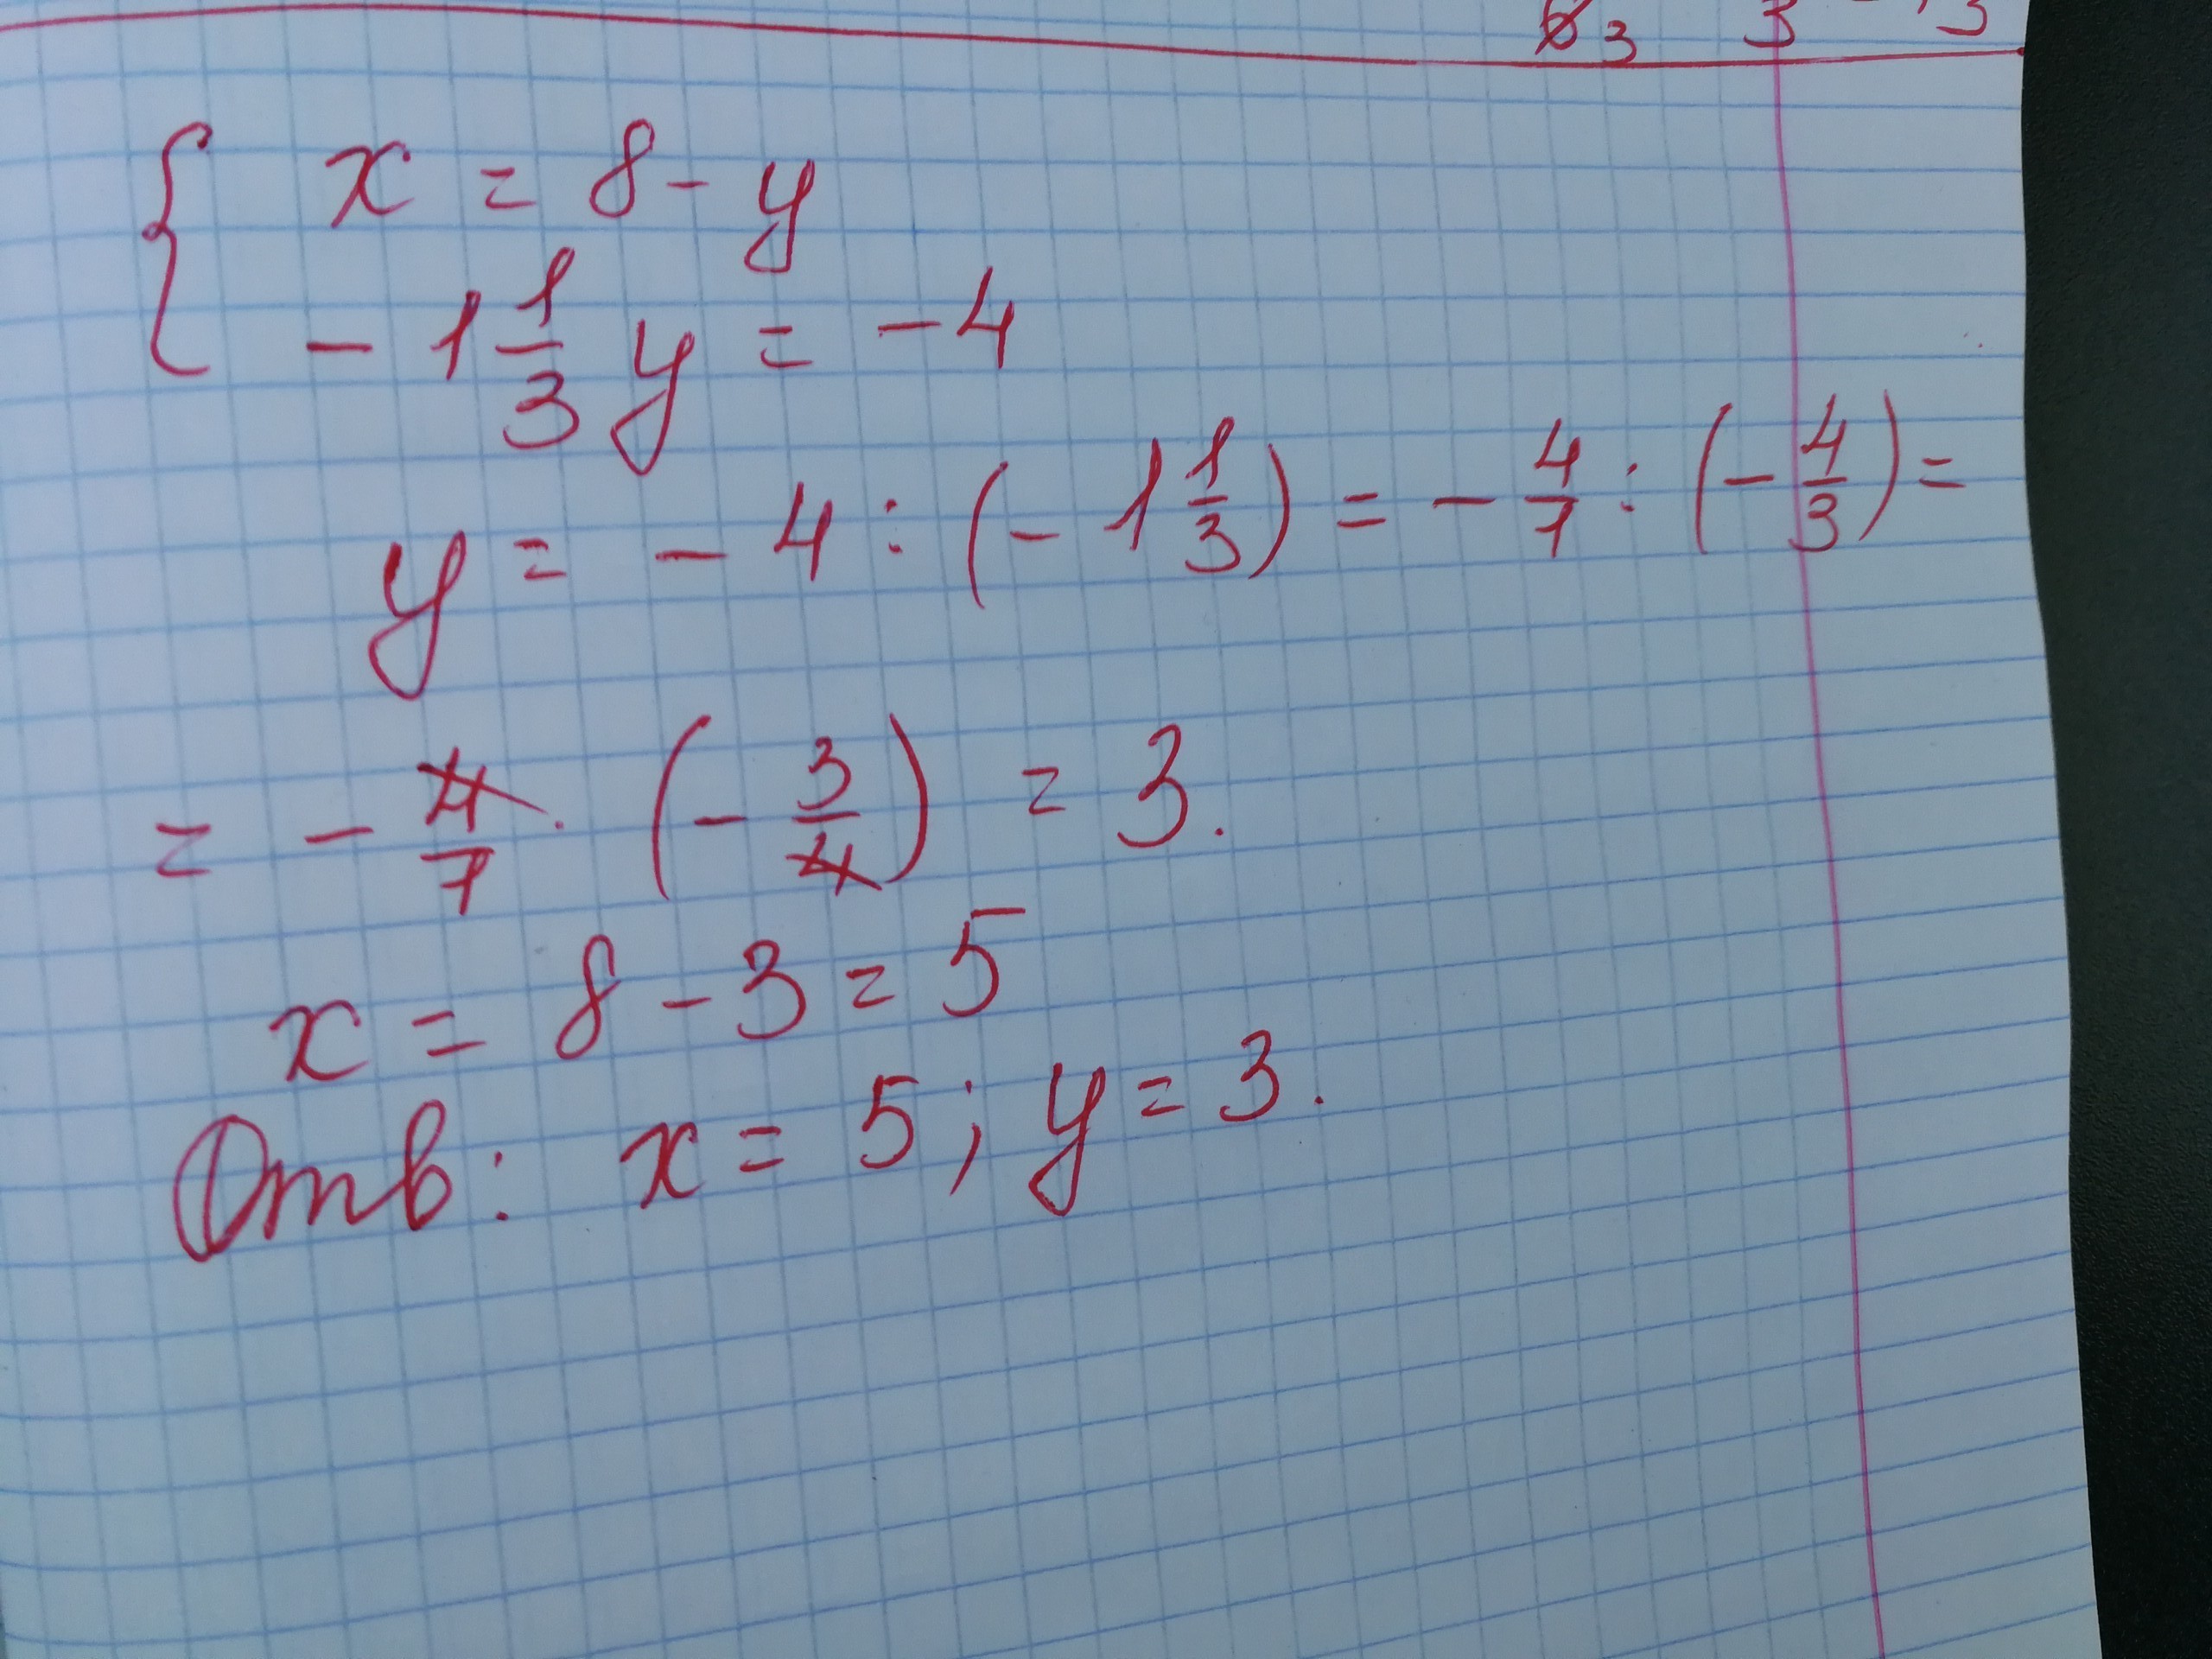 3 3 3
{ x = 8 - y
- 1 1/3 y = - 4
y = - 4 : (- 1 1/3) = - 4/1 : (- 4/3) =
= - 4/1 · (- 3/4) = 3.
x = 8 - 3 = 5
Отв: x = 5; y = 3.